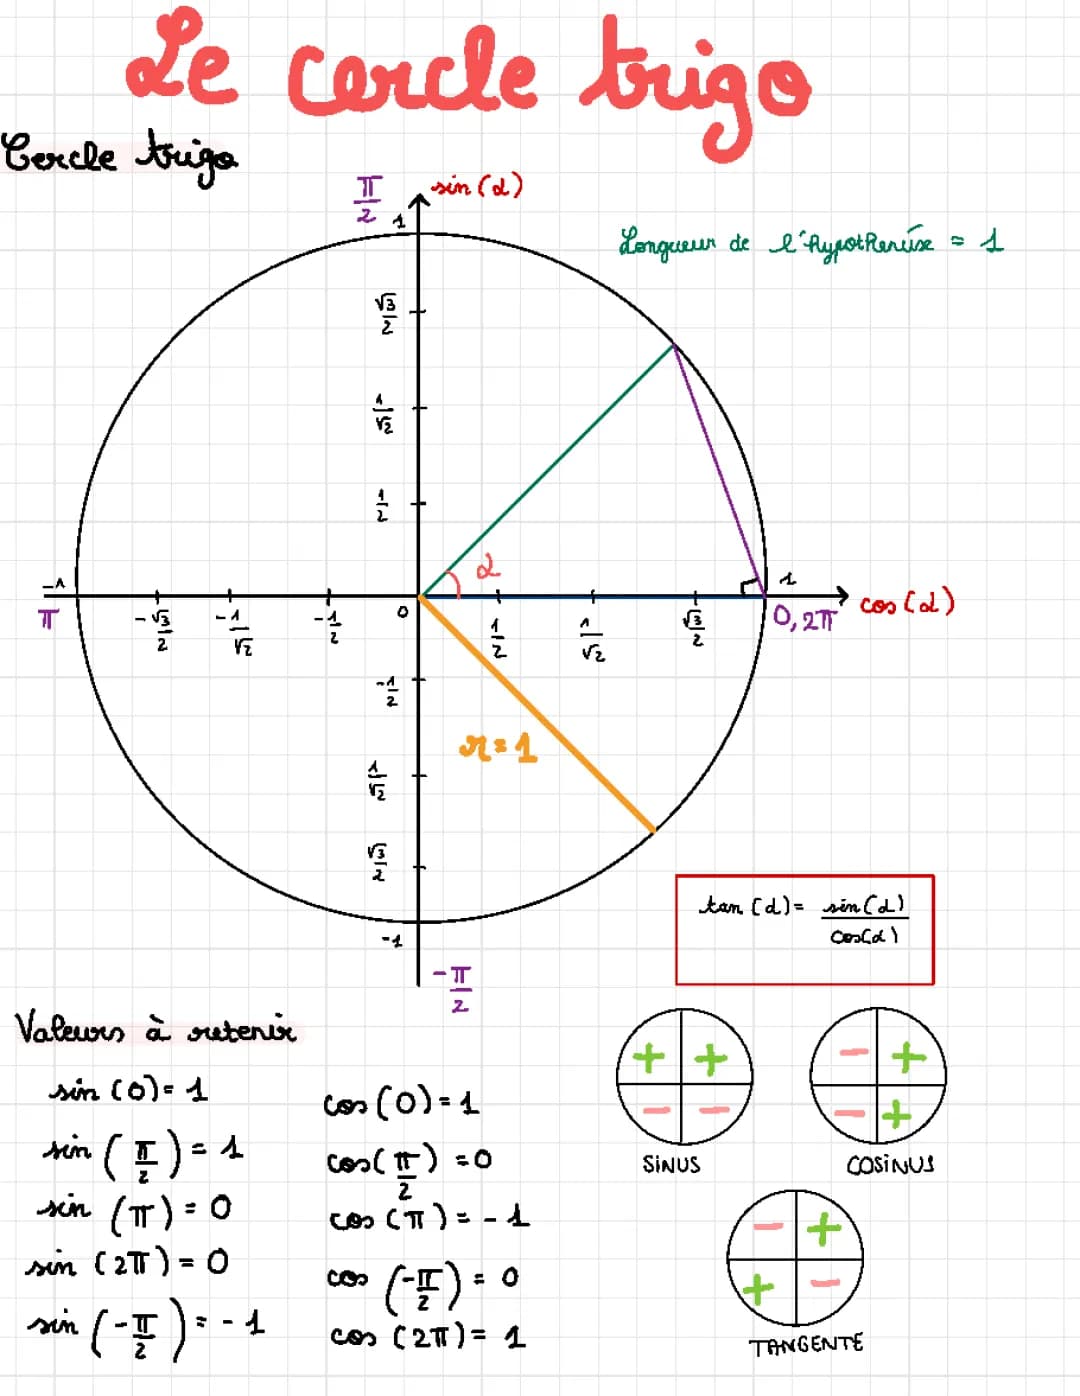 Le cercle trigo
Cercle trigo
π/2
sin(α)
1
Longueur de l'hypothenüse = 1
√3/2
1/√2
1/2
α
-1
1
π
-√3/2
-1/√2
-1/2
0
1/2
1/√2
√3/2
0, 2π
cos(α)
-1/2
r=1
1/√2
√3/2
-1
-π/2
tan(α)= sin(α)/cos(α)
Valeurs à retenir
sin(0)=1
sin(π/2)=1
sin(π)=0
sin(2π)=0
sin(-π/2)=-1
cos(0)=1
cos(π/2)=0
cos(π)=-1
cos(-π/2)=0
cos(2π)=1
+ +
- -
SINUS
- +
- +
COSINUS
- +
+ -
TANGENTE